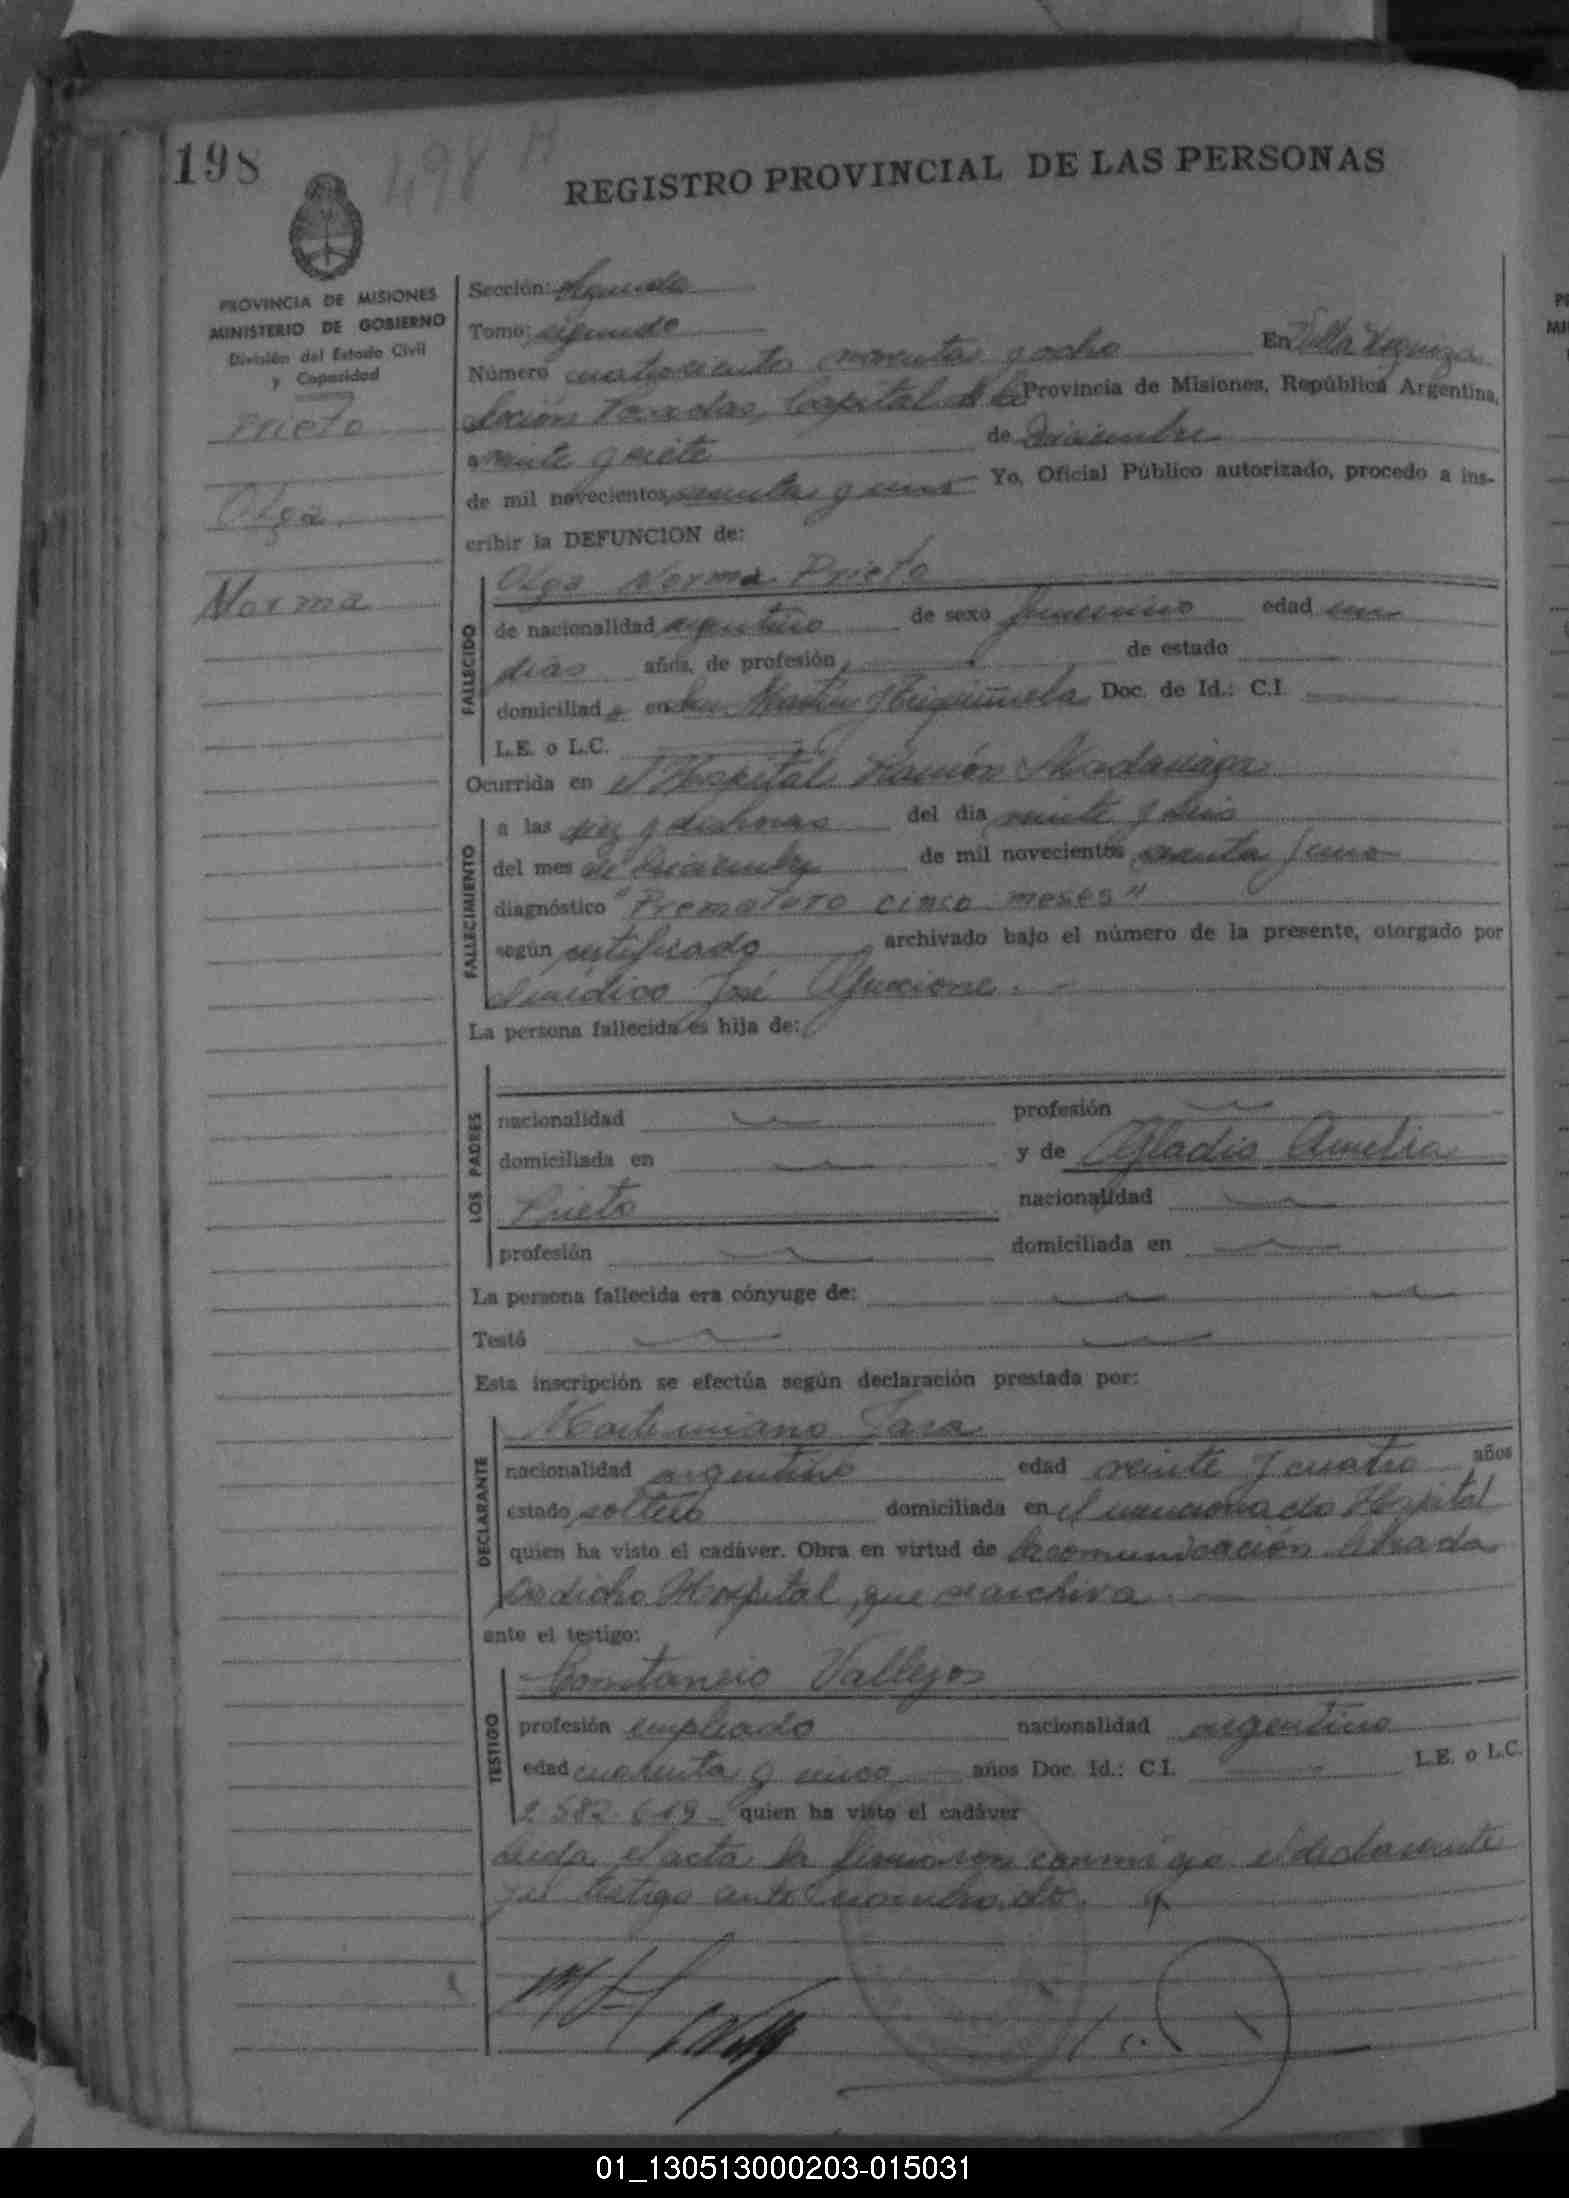 198
498 H
REGISTRO PROVINCIAL DE LAS PERSONAS
PROVINCIA DE MISIONES
MINISTERIO DE GOBIERNO
División del Estado Civil
y Capacidad
Prieto
Olga
Norma
Sección: Segunda
Tomo: segundo
Número cuatrocientos noventa y ocho En Villa Urquiza
Sección Posadas, Capital de la Provincia de Misiones, República Argentina,
a veinte y siete de Diciembre
de mil novecientos sesenta y uno Yo, Oficial Público autorizado, procedo a ins-
cribir la DEFUNCION de:
FALLECIDO
Olga Norma Prieto
de nacionalidad argentino de sexo femenino edad
dias años, de profesión de estado
domiciliad o en San Martín Doc. de Id.: C.I.
L.E. o L.C.
Ocurrida en el Hospital Ramón Madariaga
FALLECIMIENTO
a las diez y horas del dia veinte y seis
del mes de Diciembre de mil novecientos sesenta y uno
diagnóstico "Prematuro cinco meses"
según certificado archivado bajo el número de la presente, otorgado por
el médico José
La persona fallecida es hija de:
LOS PADRES
nacionalidad profesión
domiciliada en y de Gladis Amelia
Prieto nacionalidad
profesión domiciliada en
La persona fallecida era cónyuge de:
Testó
Esta inscripción se efectúa según declaración prestada por:
DECLARANTE
Marteniano Jara
nacionalidad argentino edad veinte y cuatro años
estado soltero domiciliada en el mencionado Hospital
quien ha visto el cadáver. Obra en virtud de la comunicación librada
por dicho Hospital, que se archiva
ante el testigo:
TESTIGO
Constancio Vallejos
profesión empleado nacionalidad argentino
edad cuarenta y cinco años Doc. Id.: C.I. L.E. o L.C.
2.582.619 quien ha visto el cadáver
Leida el acta la firmaron conmigo el declarante
y el testigo ante nombrado.
01_130513000203-015031